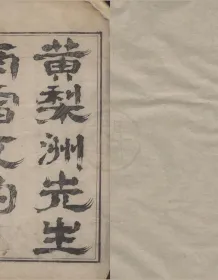 黄梨洲先生
南雷文約